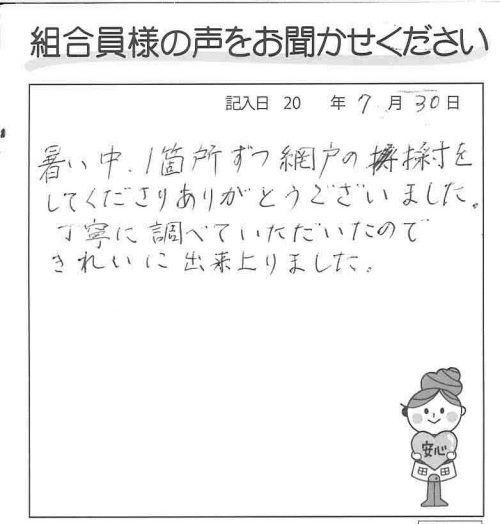 組合員様の声をお聞かせください
記入日 20 年 7 月 30 日
暑い中、1箇所ずつ網戸の採寸を
してくださりありがとうございました。
丁寧に調べていただいたので
きれいに出来上りました。
安心